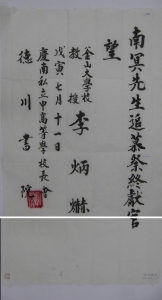 望
南冥先生追慕祭終獻官
釜山大學校
教授 李炳爀
戊寅七月十一日
慶南私立中高等學校長會
德川書院